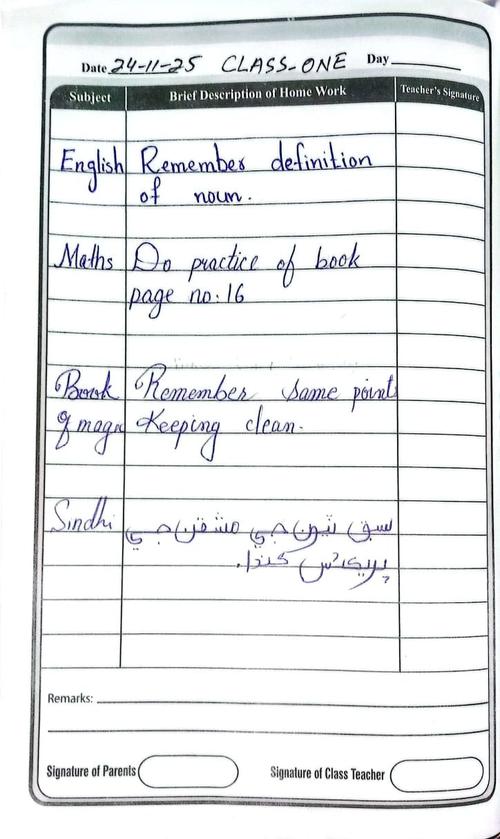 Date 24-11-25 CLASS-ONE Day
Subject Brief Description of Home Work Teacher's Signature
English Remember definition
of noun.
Maths Do practice of book
page no:16
Book Remember same points
of magic Keeping clean.
Sindhi سبق ٽيون جي مشقن جي
پريڪٽس ڪندا.
Remarks:
Signature of Parents Signature of Class Teacher